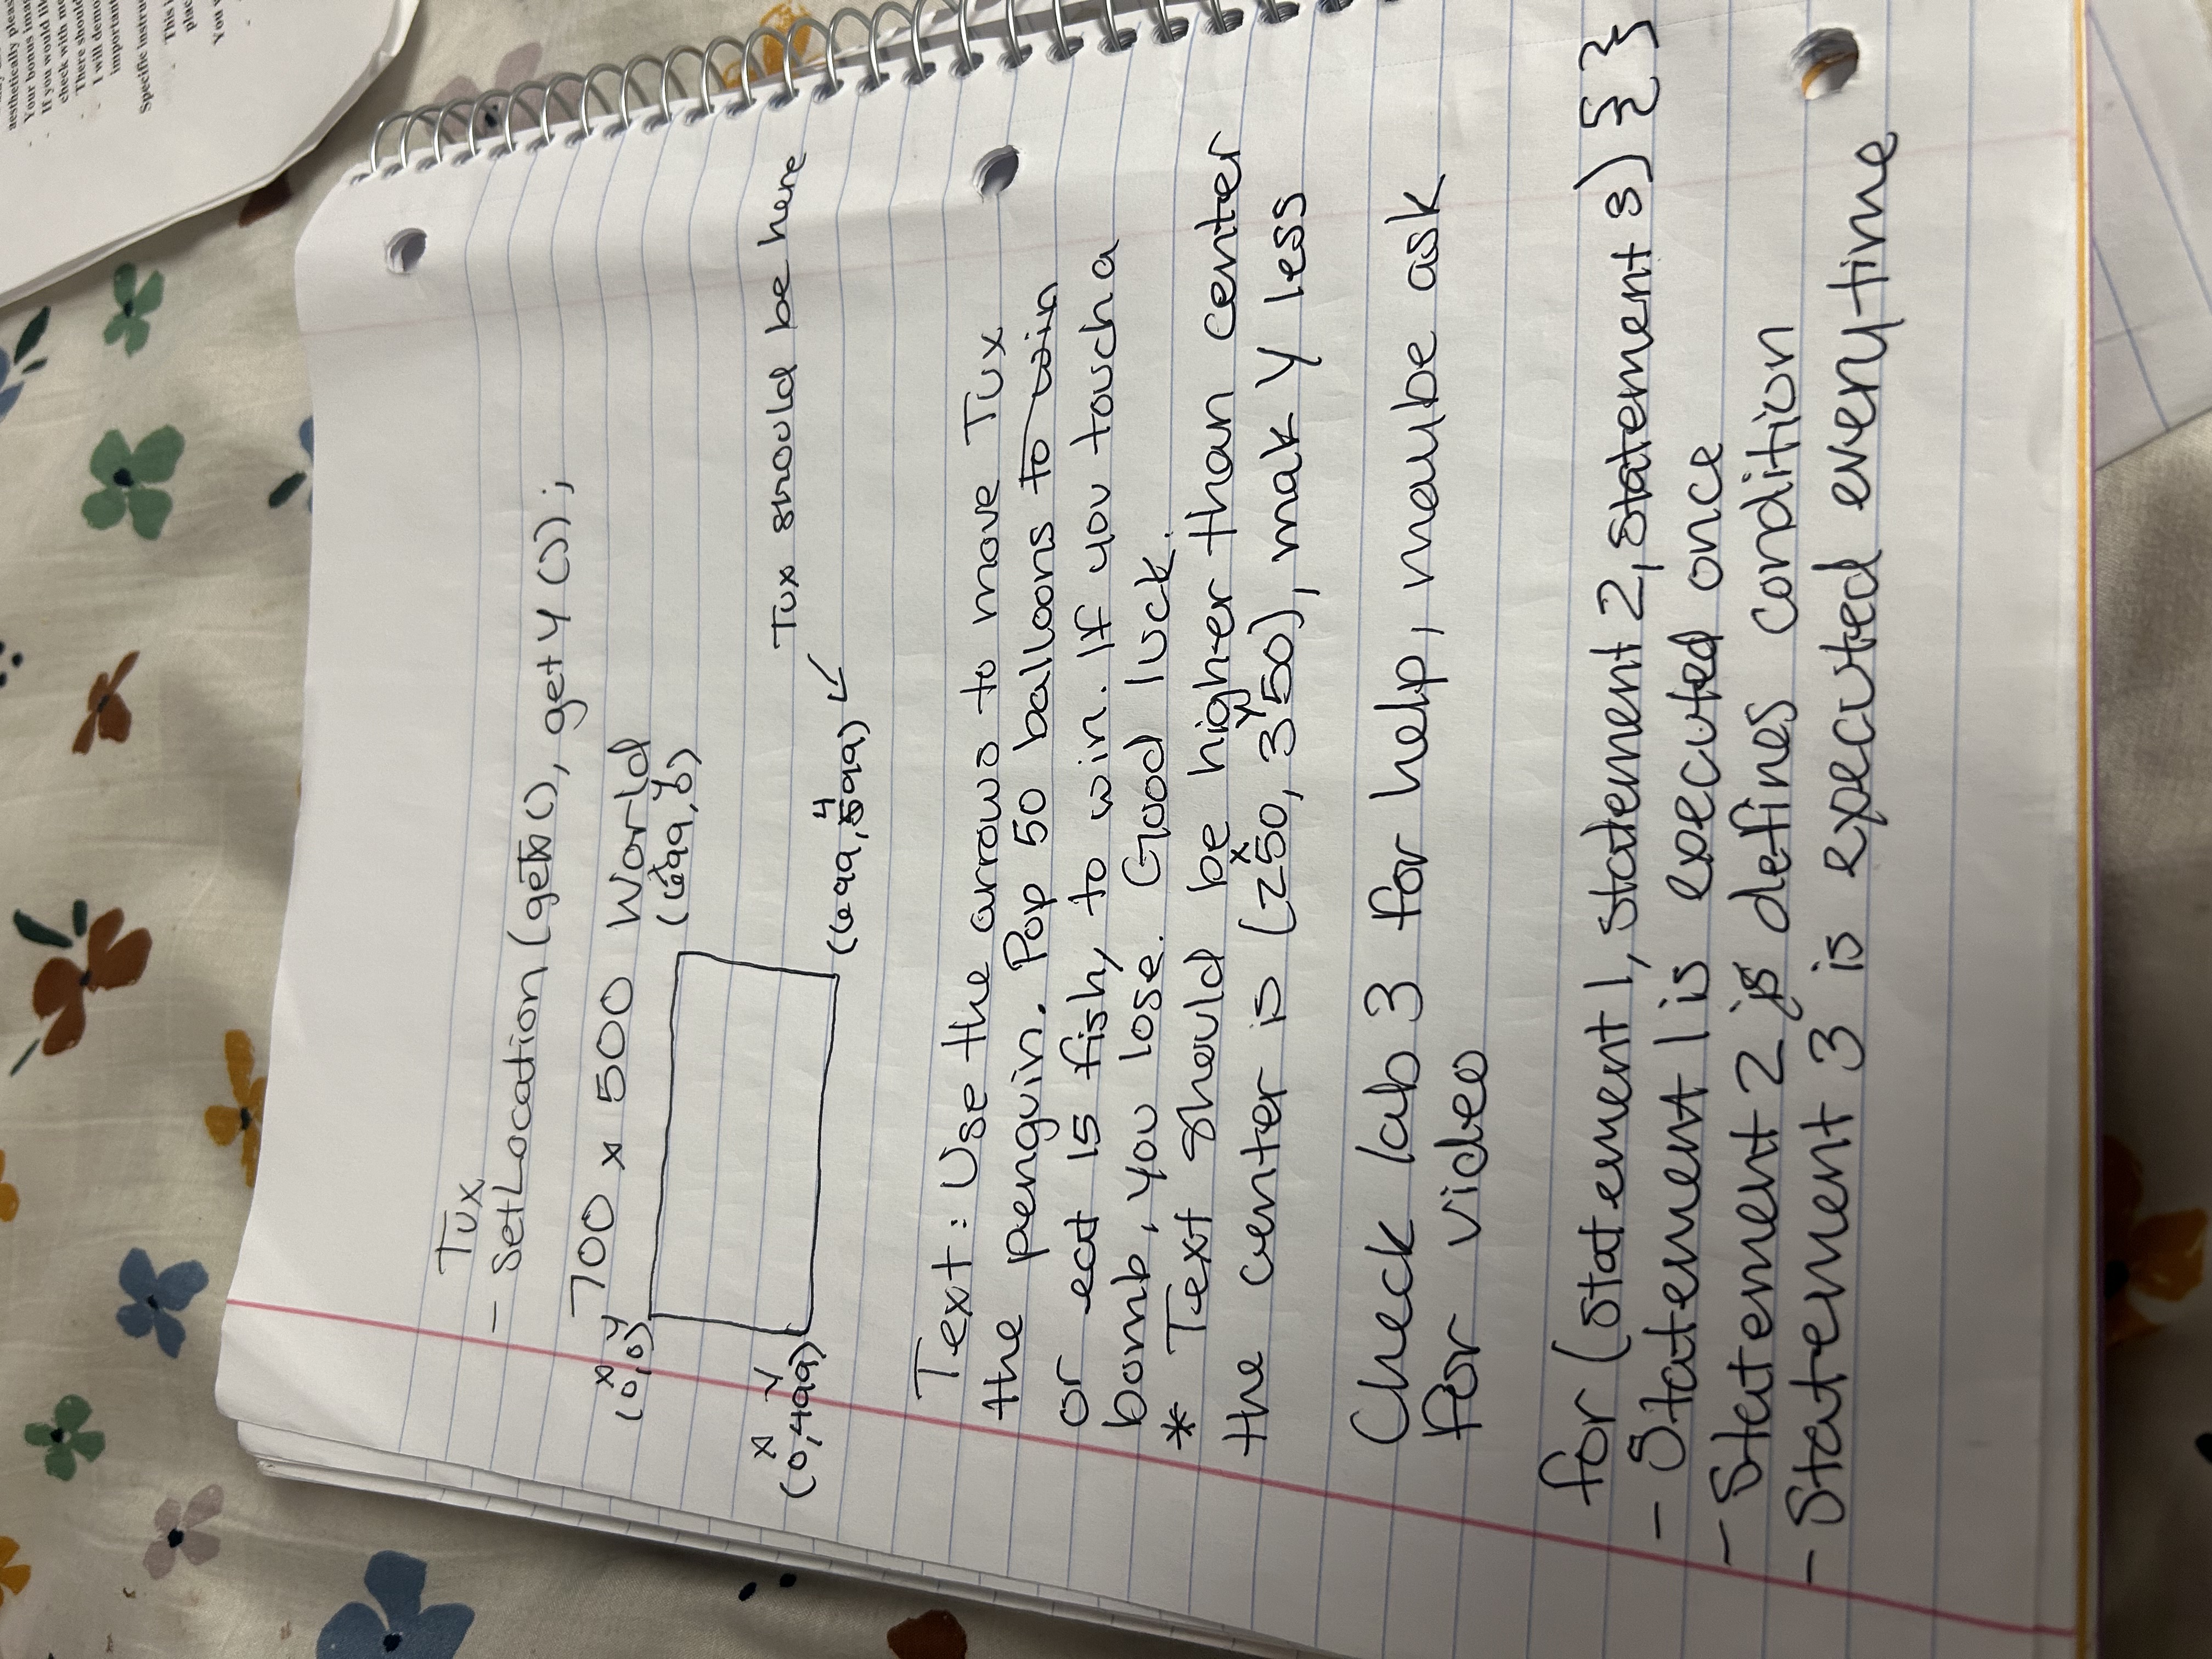 aesthetically pleas
- Your bonus ima
- If you would lik
check with me
- There should
- I will demo
important
Specific instru
- This i
plac
You v
Tux
- setLocation (getX(), getY());
700 x 500 World
x y
(0,0)
x y
(699,0)
x y
(0,499)
Tux should be here
4
(699,599)
Text: Use the arrows to move Tux
the penguin. Pop 50 balloons to win
or eat 15 fish, to win. If you touch a
bomb, you lose. Good luck.
* Text should be higher than center
x y
the center is (250, 350), mak y less
Check lab 3 for help, maybe ask
for video
for (statement 1, statement 2, statement 3) { }
- Statement 1 is executed once
- Statement 2 is defines condition
- Statement 3 is executed everytime